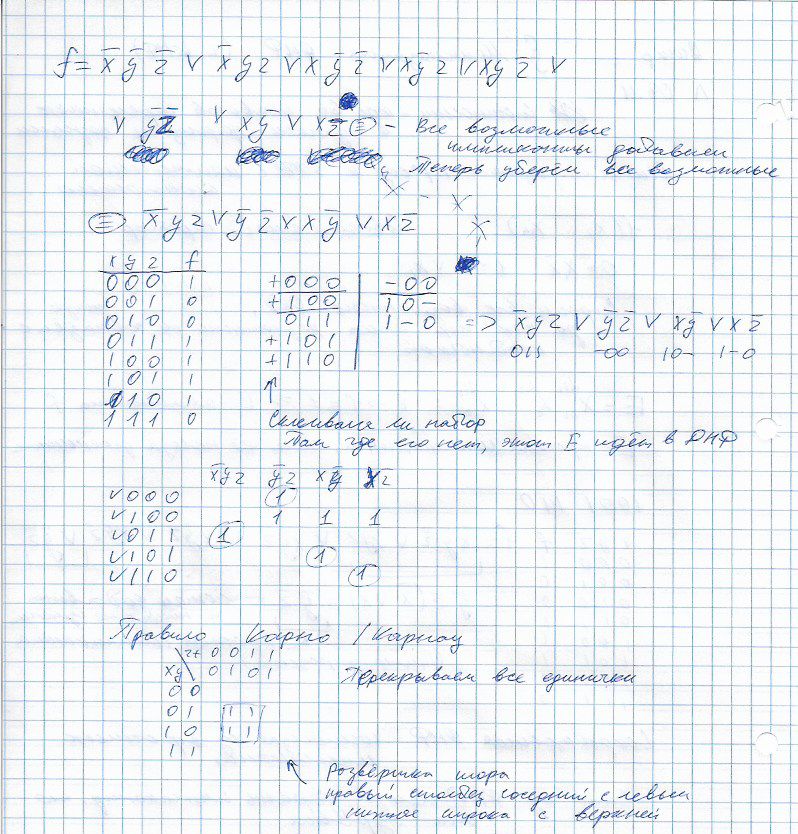 f = x̅ y̅ z̅ ∨ x̅ y z ∨ x y̅ z̅ ∨ x y̅ z ∨ x y z̅ ∨
∨ y̅ z̅ ∨ x y̅ ∨ x z̅ ≡ - Все возможные
импликанты добавили
Теперь уберём все возможные
≡ x̅ y z ∨ y̅ z̅ ∨ x y̅ ∨ x z̅
x y z f
0 0 0 1
0 0 1 0
0 1 0 0
0 1 1 1
1 0 0 1
1 0 1 1
1 1 0 1
1 1 1 0
+ 0 0 0
+ 1 0 0
0 1 1
+ 1 0 1
+ 1 1 0
- 0 0
1 0 -
1 - 0
=> x̅ y z ∨ y̅ z̅ ∨ x y̅ ∨ x z̅
011 -00 10- 1-0
↑
Склеивался ли набор
Там где его нет, этот E идёт в ДНФ
x̅ y z y̅ z̅ x y̅ x z̅
∨ 0 0 0 1
∨ 1 0 0 1 1 1
∨ 0 1 1 1
∨ 1 0 1 1
∨ 1 1 0 1
Правило Карно / Карнау
zt 0 0 1 1
xy 0 1 0 1
0 0
0 1 1 1
1 0 1 1
1 1
Перекрываем все единички
развёртка тора
правый столбец соседний с левым
нижняя строка с верхней